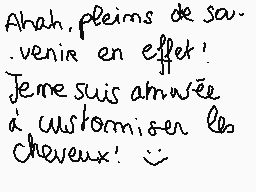 Ahah, pleims de sou-
-venir en effet!
Je me suis amusée
à customiser les
cheveux! :)